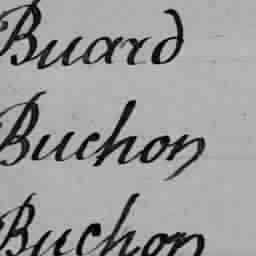 Buard
Buchon
Buchon